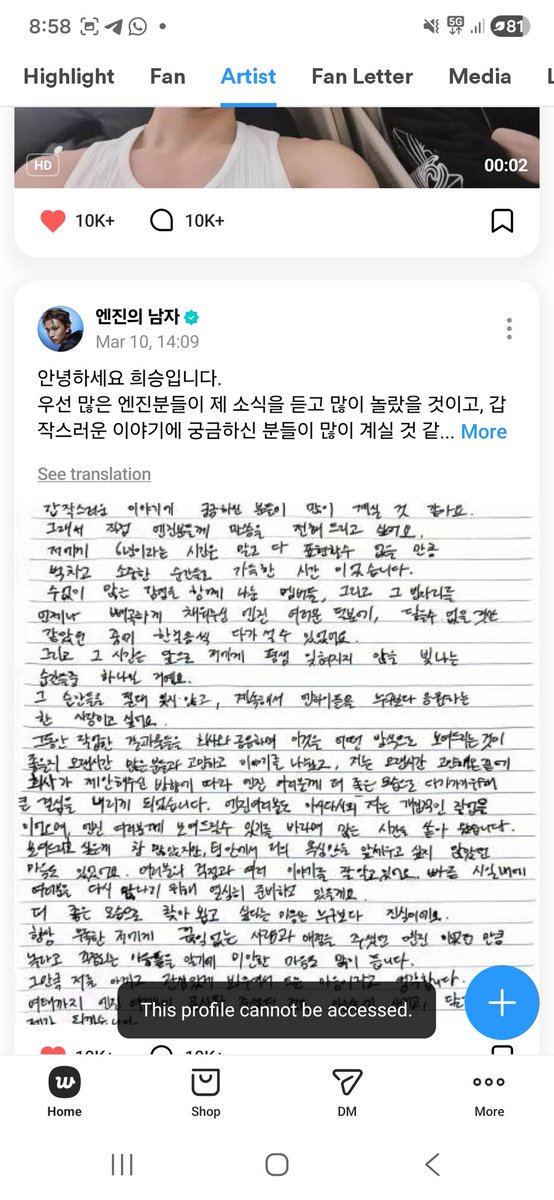 8:58
5G
81
Highlight
Fan
Artist
Fan Letter
Media
L
HD
00:02
10K+
10K+
엔진의 남자
Mar 10, 14:09
안녕하세요 희승입니다.
우선 많은 엔진분들이 제 소식을 듣고 많이 놀랐을 것이고, 갑
작스러운 이야기에 궁금하신 분들이 많이 계실 것 같... More
See translation
갑작스러운 이야기에 궁금하신 분들이 많이 계실 것 같아요.
그래서 직접 엔진분들께 말씀을 전해 드리고 싶어요.
저에게 6년이라는 시간은 말로 다 표현할수 없을 만큼
벅차고 소중한 순간들로 가득한 시간 이었습니다.
수없이 많은 감정을 함께 나눈 멤버들, 그리고 그 빈자리를
언제나 빼곡하게 채워주신 엔진 여러분 덕분에, 닿을수 없을 것만
같았던 꿈에 한걸음씩 다가 설 수 있었어요.
그리고 그 시간은 앞으로 저에게 평생 잊혀지지 않을 빛나는
순간들중 하나일 거예요.
그 순간들을 절대 잊지 않고, 계속해서 엔하이픈을 누구보다 응원하는
한 사람이고 싶어요.
그동안 작업한 결과물들을 회사와 공유하며 이것을 어떤 방식으로 보여드리는것이
좋을지 오랜시간 많은 분들과 고민하고 이야기를 나눴고, 저는 오랜시간 고민해온 끝에
회사가 제안해주신 방향에 따라 엔진 여러분께 더 좋은 모습으로 다가가기위해
큰 결심을 내리게 되었습니다. 엔진여러분도 아시다시피 저는 개인적인 작업을
이어오며, 엔진 여러분께 보여드릴수 있기를 바라며 많은 시간을 쏟아 왔습니다.
보여드리고 싶은게 참 많았지만, 팀 안에서 저의 욕심만을 앞세우고 싶지 않았던
마음도 있었어요. 여러분의 걱정과 여러 이야기를 잘 알고 있어요. 빠른 시일내에
여러분을 다시 만나기 위해 열심히 준비하고 있을게요.
더 좋은 모습으로 찾아 뵙고 싶다는 마음은 누구보다 진심이에요.
항상 부족한 저에게 끊임없는 사랑과 애정을 주셨던 엔진 이었던 만큼
놀라고 걱정되는 마음들을 알기에 미안한 마음도 많이 듭니다.
그만큼 저를 아끼고 관심있게 봐주셔서 드는 마음이라고 생각합니다.
여태까지 엔진
This profile cannot be accessed.
Home
Shop
DM
More